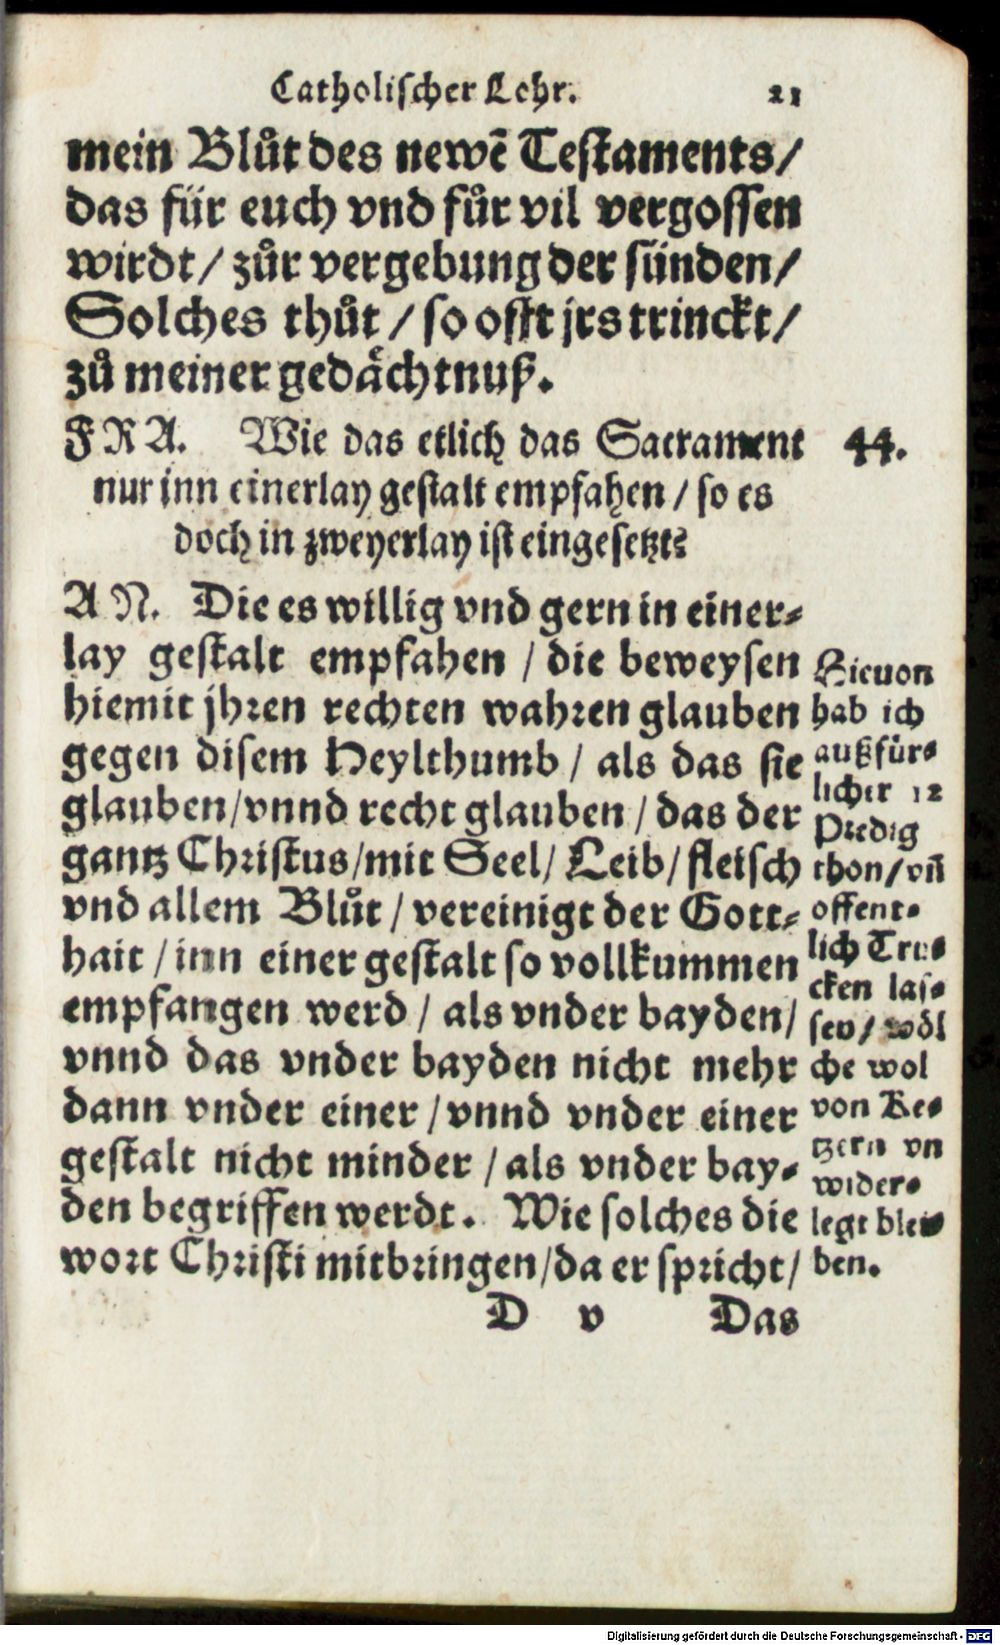 Catholischer Lehr. 21
mein Blůt des newẽ Testaments/
das für euch vnd fůr vil vergossen
wirdt/ zůr vergebung der sünden/
Solches thůt / so offt jrs trinckt/
zů meiner gedaͤchtnuß.
FRA. Wie das etlich das Sacrament 44.
nur inn einerlay gestalt empfahen / so es
doch in zweyerlay ist eingesetzt?
AN. Die es willig vnd gern in einer-
lay gestalt empfahen / die beweysen
hiemit jhren rechten wahren glauben
gegen disem Heylthumb / als das sie
glauben/vnnd recht glauben / das der
gantz Christus/mit Seel/ Leib/ fleisch
vnd allem Blůt / vereinigt der Gott-
hait / inn einer gestalt so vollkummen
empfangen werd / als vnder bayden/
vnnd das vnder bayden nicht mehr
dann vnder einer / vnnd vnder einer
gestalt nicht minder / als vnder bay-
den begriffen werdt. Wie solches die
wort Christi mitbringen/da er spricht/
Hieuon
hab ich
außfür-
licher 12
Predig
thon/ vñ
offent-
lich Tru-
cken las-
sen/ wöl
che wol
von Ke-
tzern vn
wider-
legt blei-
ben.
D v Das
Digitalisierung gefördert durch die Deutsche Forschungsgemeinschaft - DFG